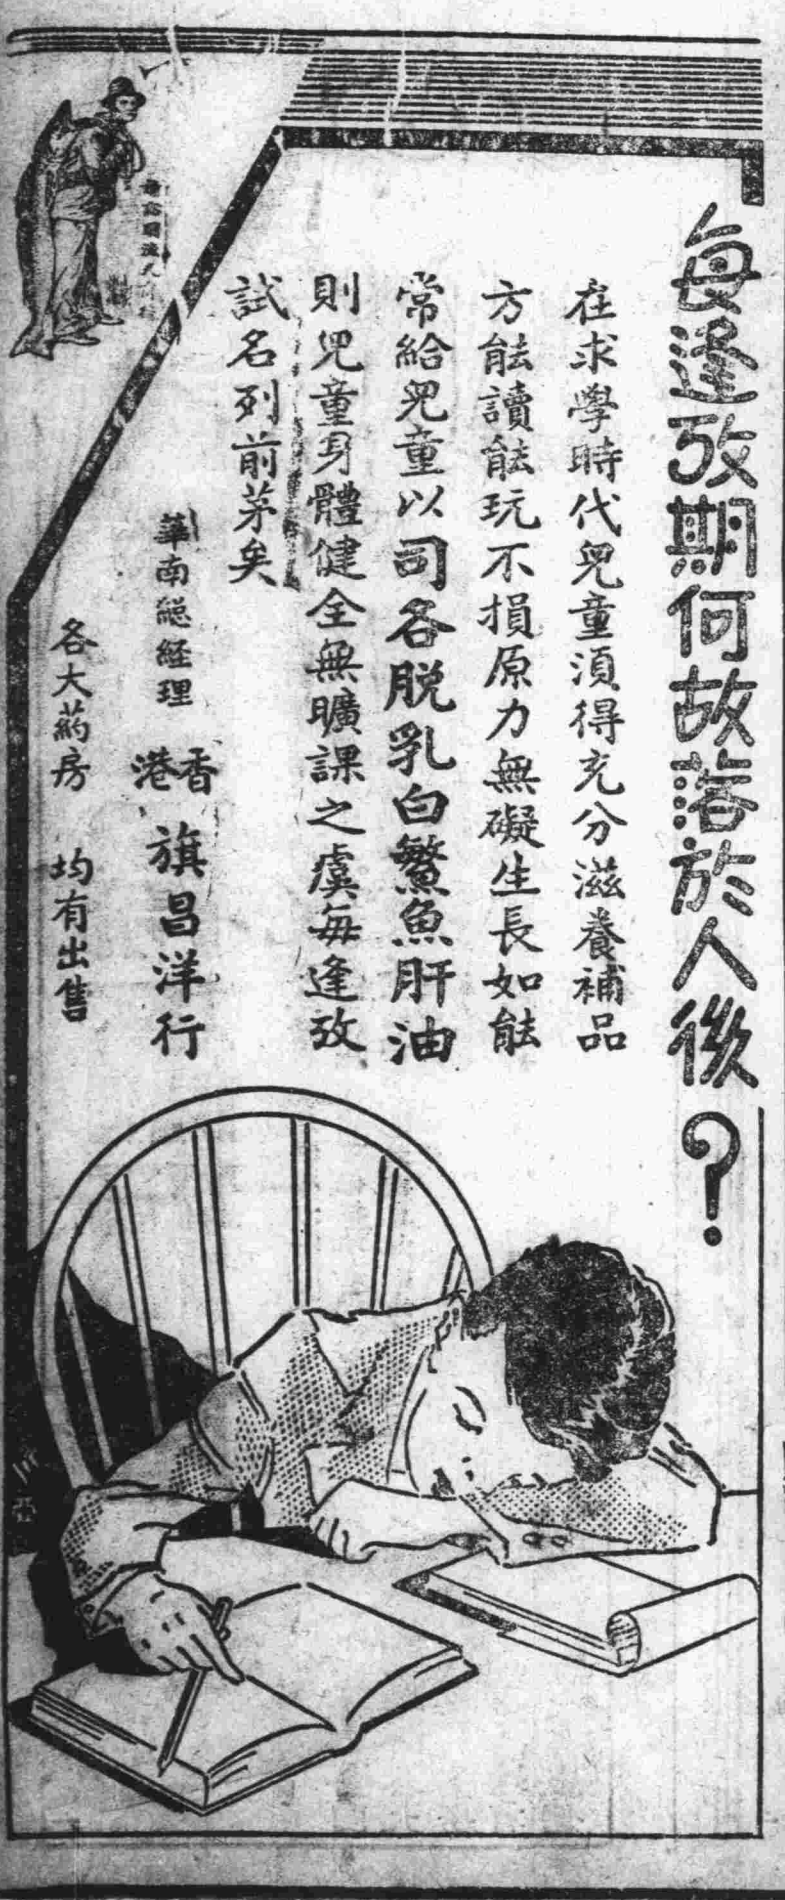 每逢攷期何故落於人後？
在求學時代兒童須得充分滋養補品
方能讀能玩不損原力無礙生長如能
常給兒童以司各脫乳白鰵魚肝油
則兒童身體健全無曠課之虞每逢攷
試名列前茅矣
華南總經理
香港
旗昌洋行
各大葯房 均有出售